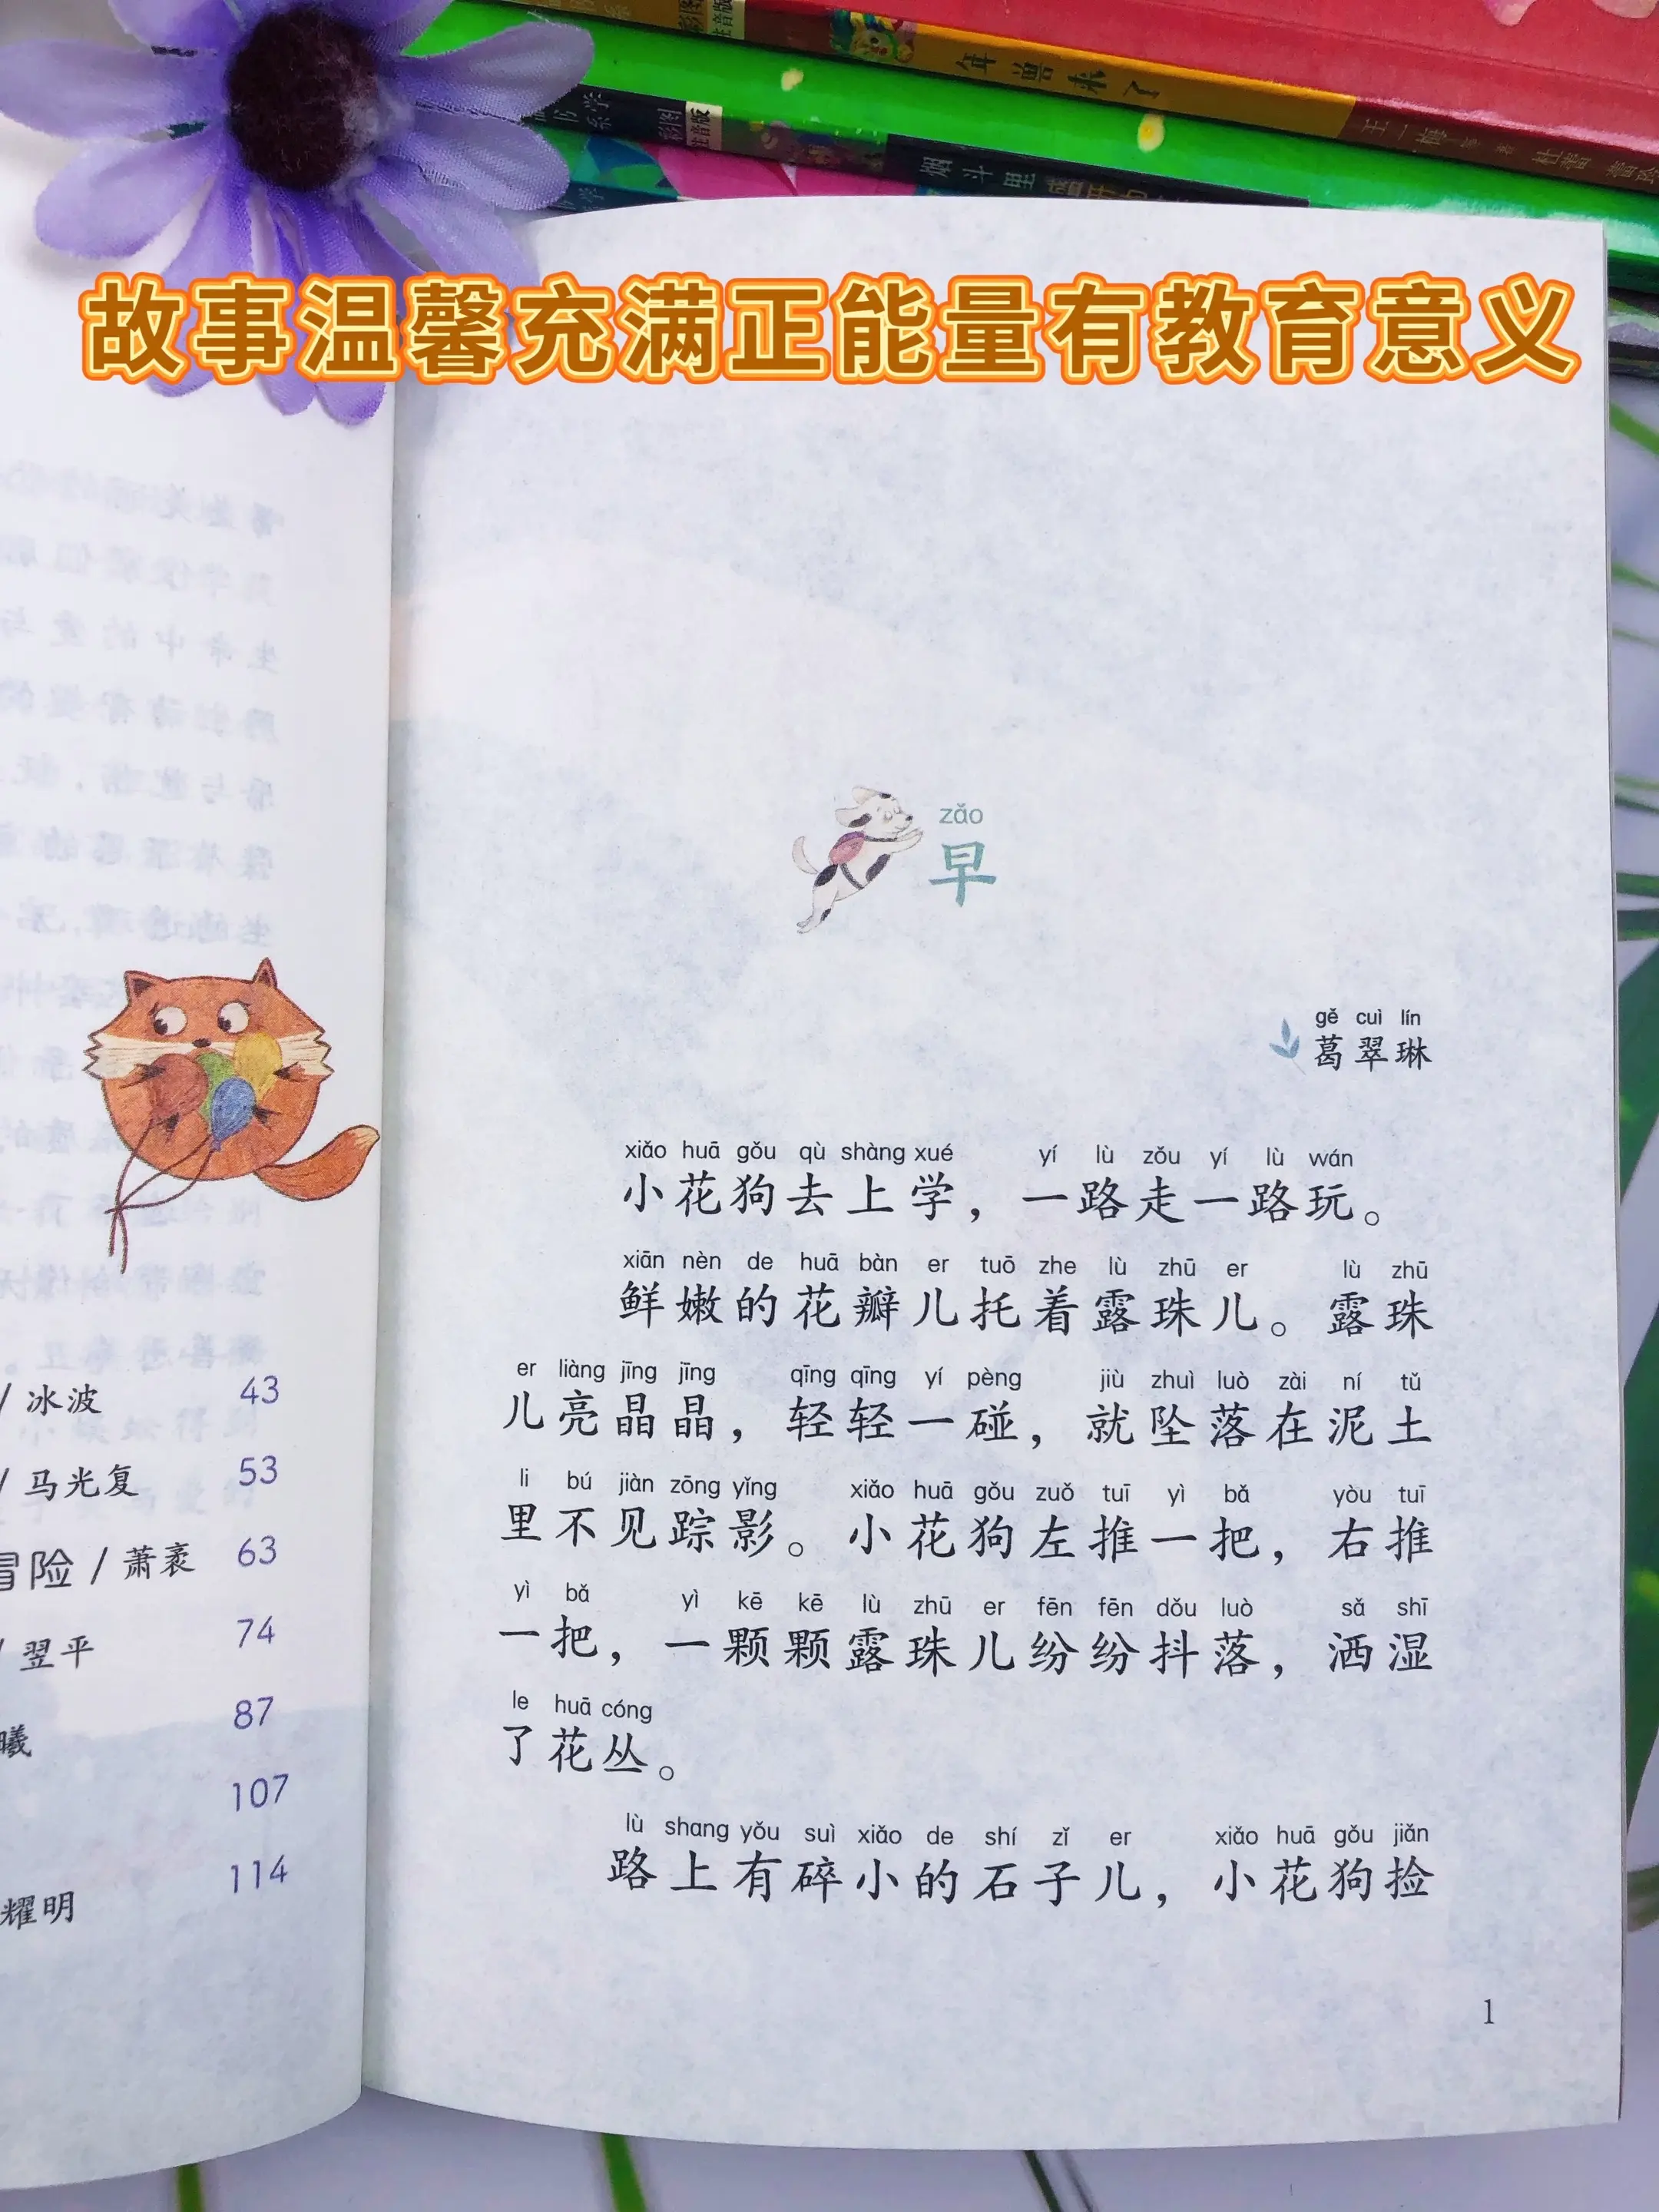 年兽来了
王一梅
彩图
注音版
故事温馨充满正能量有教育意义
/ 冰波 43
/ 马光复 53
冒险 / 萧袤 63
/ 翌平 74
曦 87
107
耀明 114
zǎo
早
gě cuì lín
葛翠琳
xiǎo huā gǒu qù shàng xué yí lù zǒu yí lù wán
小花狗去上学，一路走一路玩。
xiān nèn de huā bàn er tuō zhe lù zhū er lù zhū
鲜嫩的花瓣儿托着露珠儿。露珠
er liàng jīng jīng qīng qīng yí pèng jiù zhuì luò zài ní tǔ
儿亮晶晶，轻轻一碰，就坠落在泥土
li bú jiàn zōng yǐng xiǎo huā gǒu zuǒ tuī yì bǎ yòu tuī
里不见踪影。小花狗左推一把，右推
yì bǎ yì kē kē lù zhū er fēn fēn dǒu luò sǎ shī
一把，一颗颗露珠儿纷纷抖落，洒湿
le huā cóng
了花丛。
lù shang yǒu suì xiǎo de shí zǐ er xiǎo huā gǒu jiǎn
路上有碎小的石子儿，小花狗捡
1